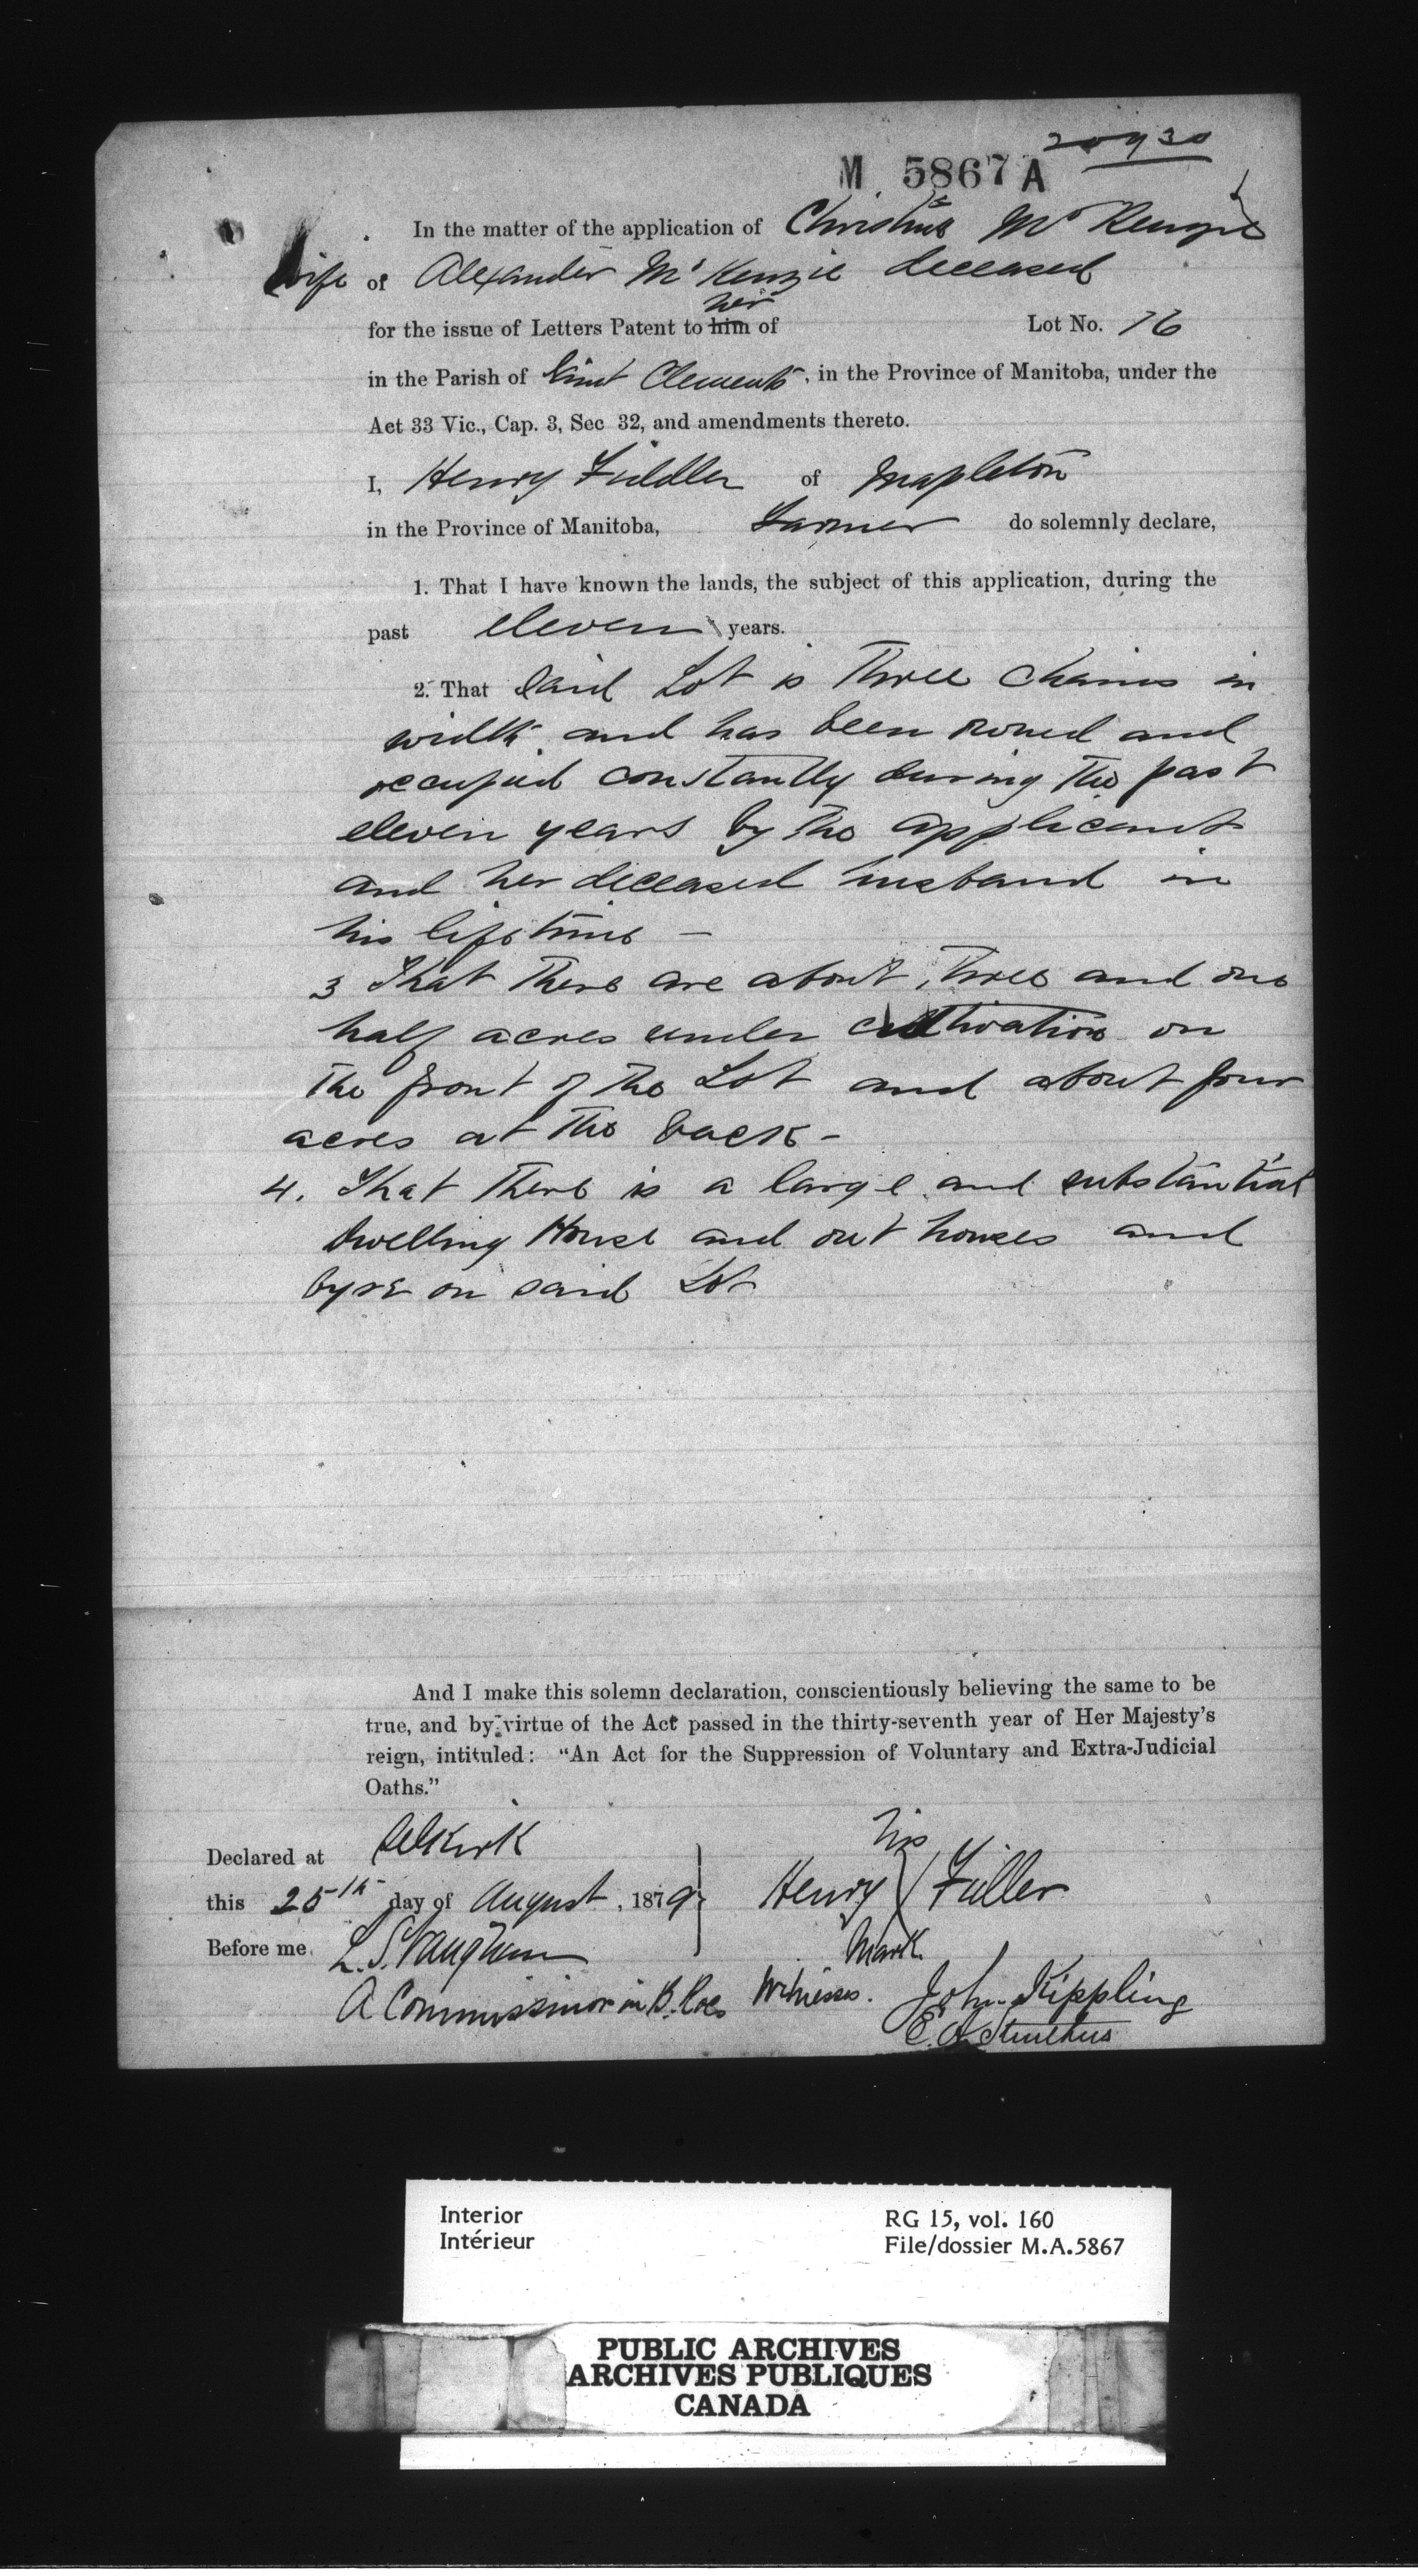 20930
M 5867 A
In the matter of the application of Christine McKenzie
Wife of Alexander McKenzie deceased
her
for the issue of Letters Patent to him of Lot No. 76
in the Parish of Saint Clements, in the Province of Manitoba, under the
Act 33 Vic., Cap. 3, Sec 32, and amendments thereto.
I, Henry Fiddler of Mapleton
in the Province of Manitoba, Farmer do solemnly declare,
1. That I have known the lands, the subject of this application, during the
past eleven years.
2. That said Lot is Three chains in
width and has been owned and
occupied constantly during The past
eleven years by The applicant
and her deceased husband in
his life time –
3 That There are about Three and one
half acres under cultivation on
The front of The Lot and about four
acres at The back –
4. That There is a large and substantial
Dwelling House and out houses and
byre on said Lot
And I make this solemn declaration, conscientiously believing the same to be
true, and by virtue of the Act passed in the thirty-seventh year of Her Majesty's
reign, intituled: "An Act for the Suppression of Voluntary and Extra-Judicial
Oaths."
Declared at Selkirk
his
this 25th day of August, 1879 Henry Fidler
Before me L. S. Vaughan
Mark
A Commissioner in B. R &c Witnesses. John Kippling
E. A. Struthers
Interior
Intérieur
RG 15, vol. 160
File/dossier M.A.5867
PUBLIC ARCHIVES
ARCHIVES PUBLIQUES
CANADA